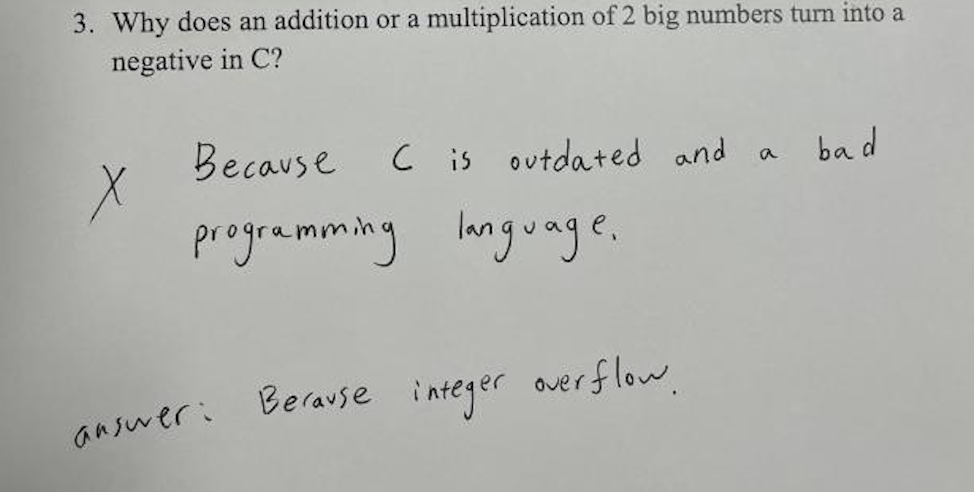 3. Why does an addition or a multiplication of 2 big numbers turn into a
negative in C?
X Because C is outdated and a bad
programming language.
answer: Because integer overflow.